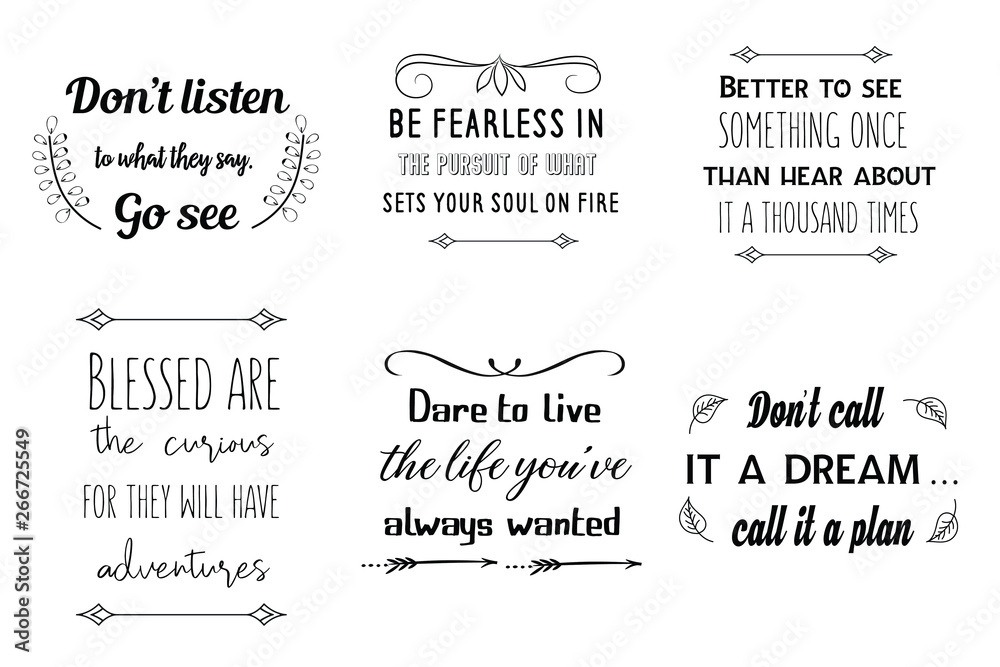 Don't listen
to what they say.
Go see
BE FEARLESS IN
THE PURSUIT OF WHAT
SETS YOUR SOUL ON FIRE
BETTER TO SEE
SOMETHING ONCE
THAN HEAR ABOUT
IT A THOUSAND TIMES
BLESSED ARE
the curious
FOR THEY WILL HAVE
adventures
Dare to live
the life you've
always wanted
Don't call
IT A DREAM...
call it a plan
Adobe Stock | #266725549